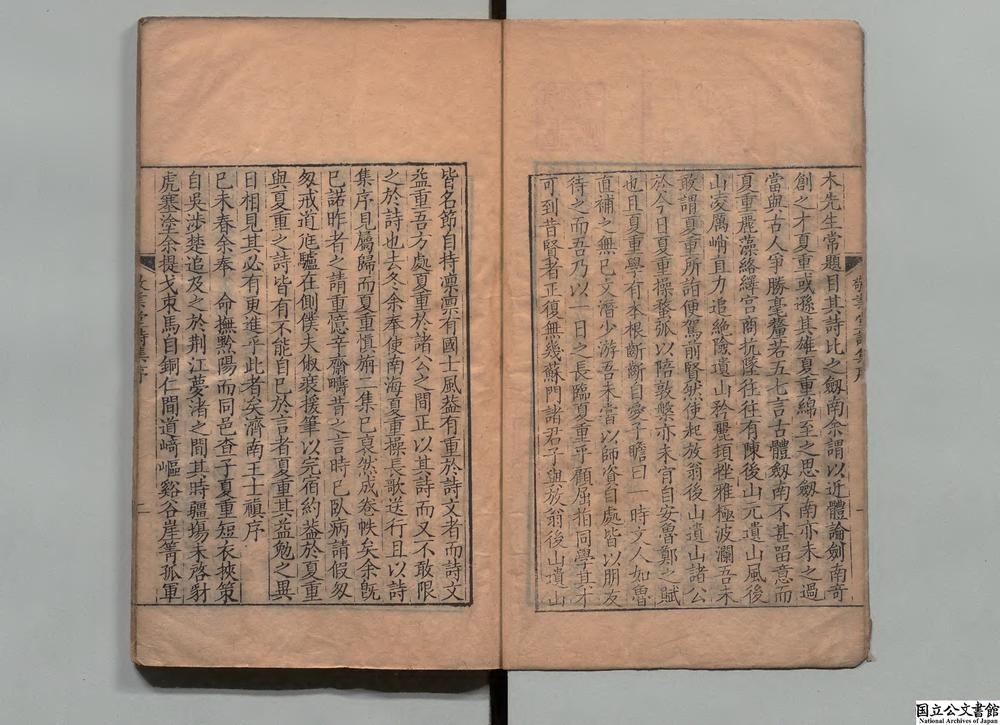 木先生常題目其詩比之劒南余謂以近體論劍南奇
創之才夏重或遜其雄夏重綿至之思劒南亦未之過
當與古人爭勝毫釐若五七言古體劒南不甚畱意而
夏重麗藻絡繹宮商抗墜往往有陳後山元遺山風後
山凌厲峭且力追絶險遺山矜麗頓挫雅極波瀾吾未
敢謂夏重所詣便駕前賢然使起放翁後山遺山諸公
於今日夏重操蝥弧以陪敦槃亦未肎自安魯鄭之賦
也且夏重學有本根斷斷自愛子瞻曰一時文人如魯
直補之無己文潛少游吾未嘗以師資自處皆以朋友
待之而吾乃以一日之長臨夏重乎顧屈指同學其才
可到昔賢者正復無幾蘇門諸君子與放翁後山遺山
敬業堂詩集序
一
皆名節自持凛凛有國士風葢有重於詩文者而詩文
益重吾方處夏重於諸公之間正以其詩而又不敢限
之於詩也去冬余奉使南海夏重操長歌送行且以詩
集序見屬歸而夏重慎旃二集已裒然成卷帙矣余旣
已諾昨者之請重憶辛齋疇昔之言時已臥病請假匆
匆戒道征驢在側僕夫俶裝援筆以完宿約葢於夏重
與夏重之詩皆有不能自已於言者夏重其益勉之異
日相見其必有更進乎此者矣濟南王士禎序
巳未春余奉　命撫黔陽而同邑查子夏重短衣挾策
自吳涉楚追及之於荆江夢渚之間其時疆埸未啓豺
虎寒塗余提戈束馬自銅仁間道﨑嶇谿谷崖箐孤軍
敬業堂詩集序
二
国立公文書館
National Archives of Japan